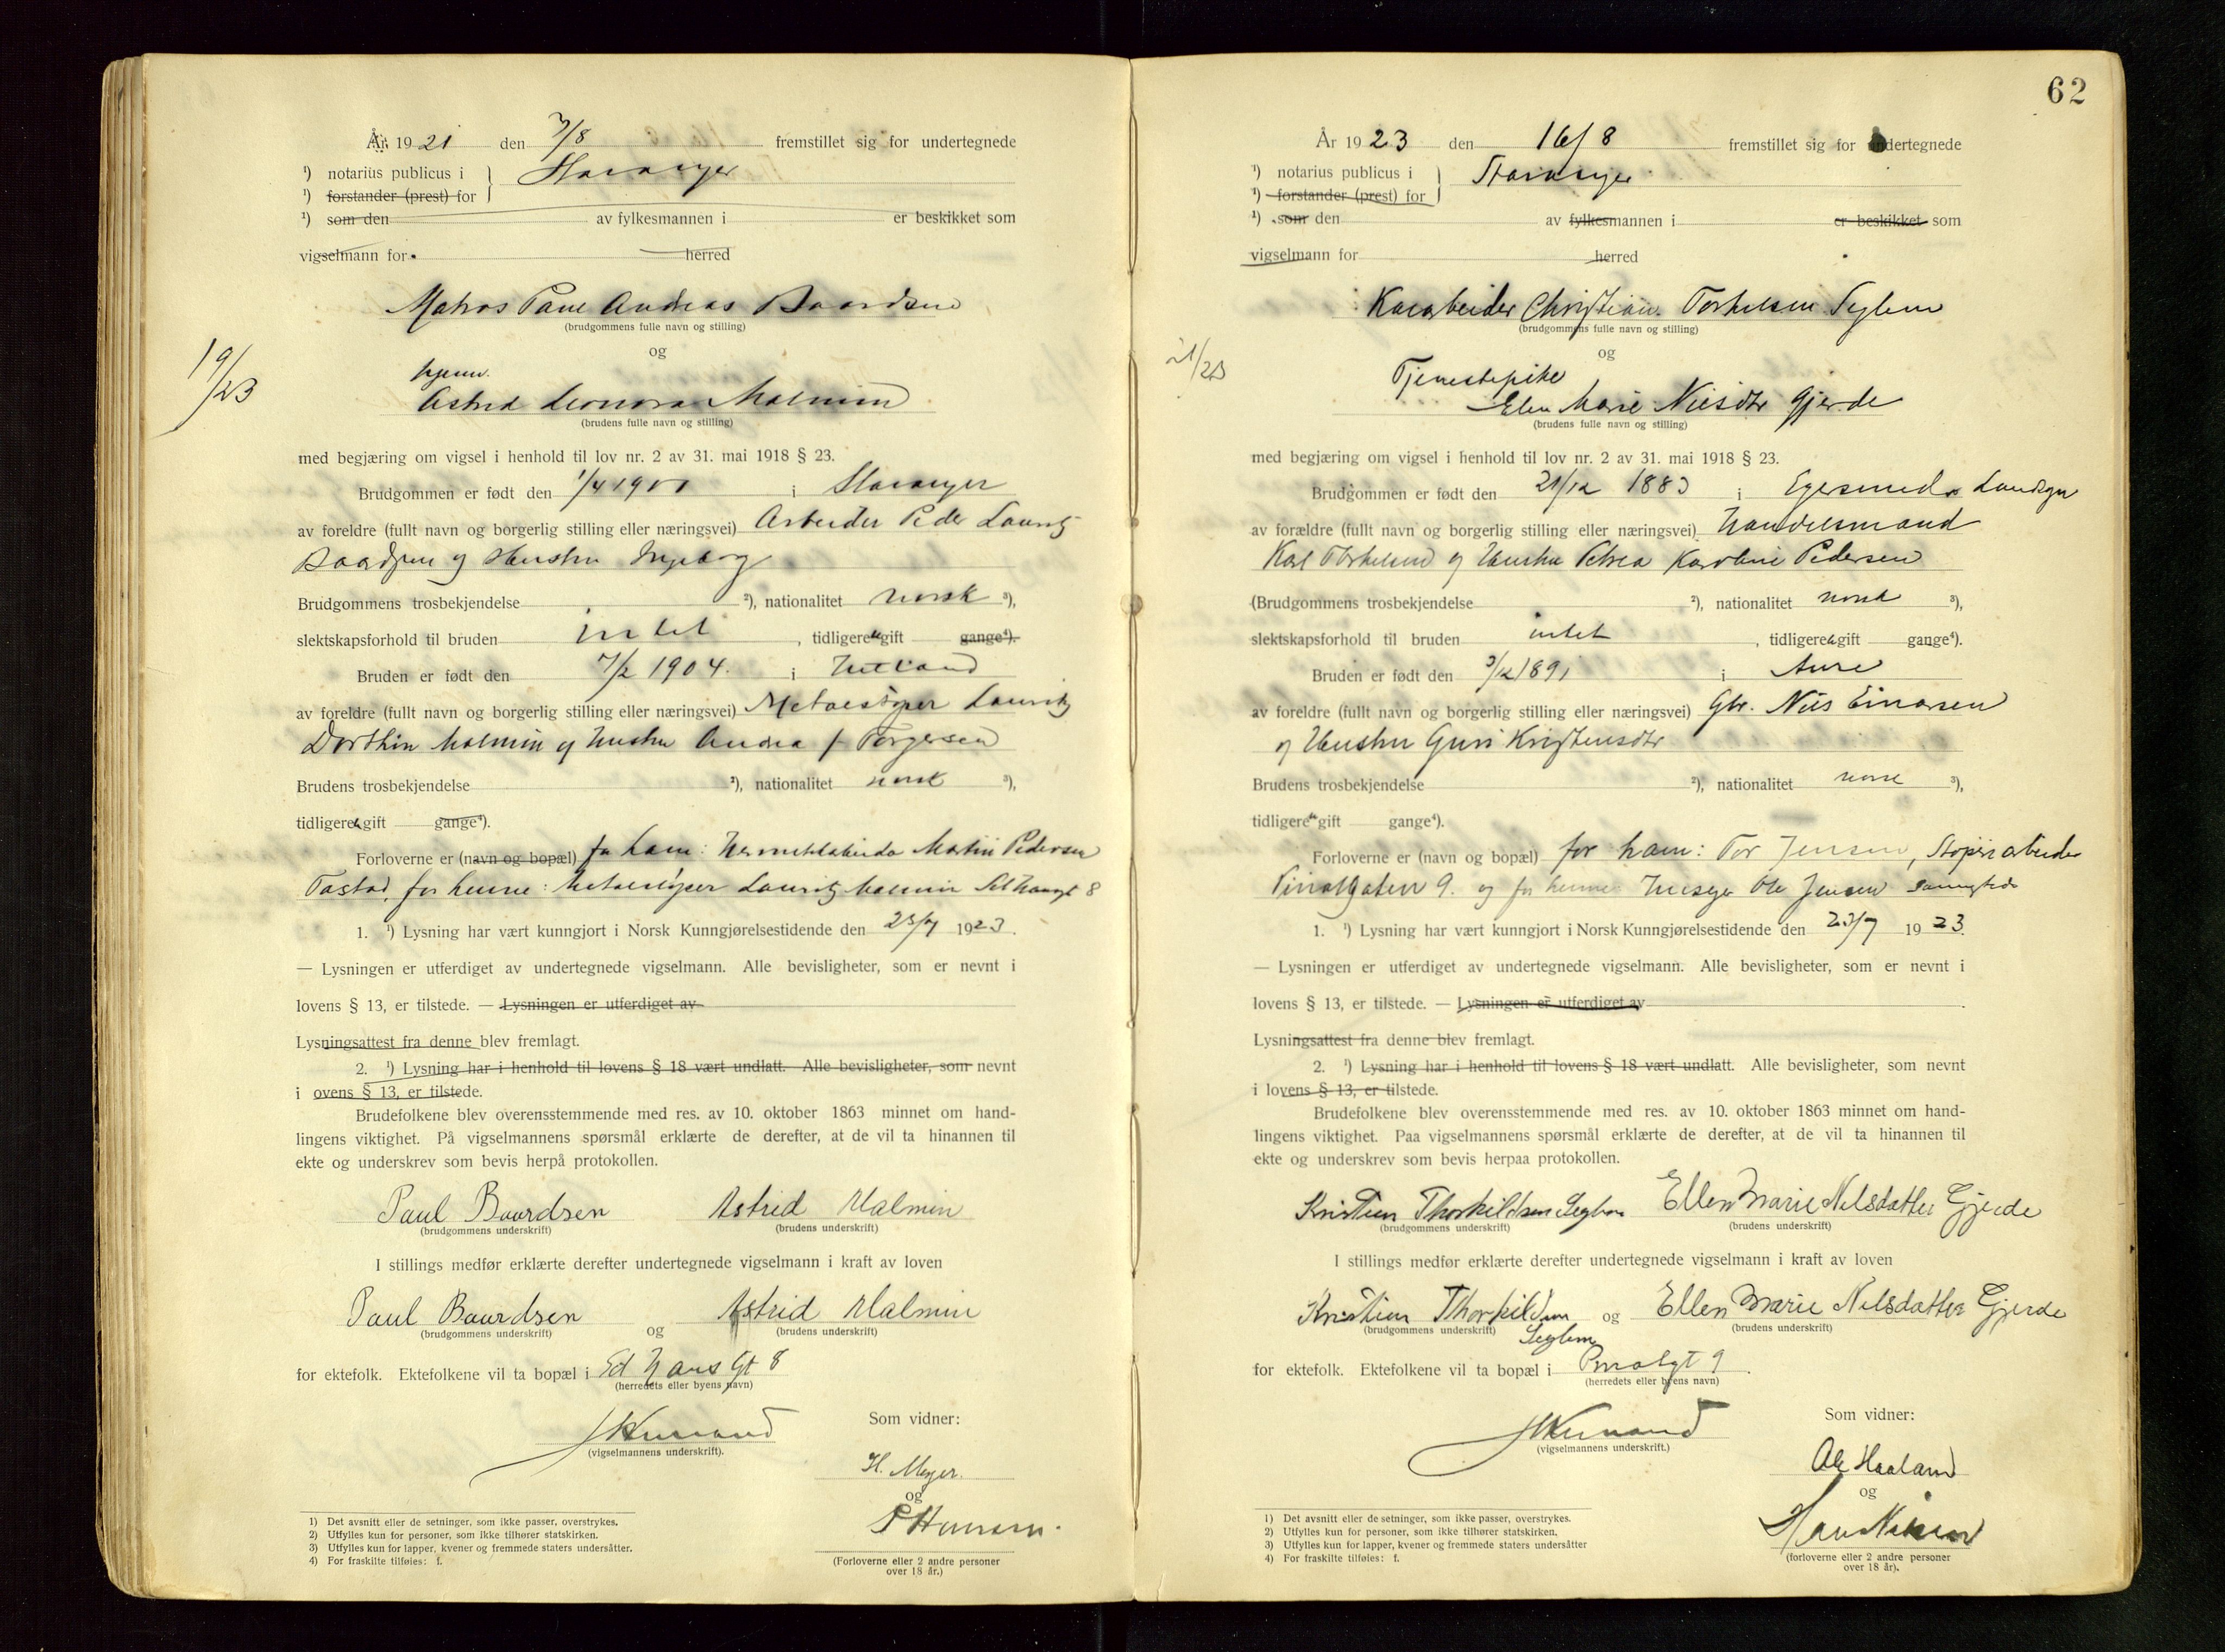 År 1921 den 7/8 fremstillet sig for undertegnede
¹) notarius publicus i } Stavanger
¹) forstander (prest) for
¹) som den av fylkesmannen i er beskikket som
vigselmann for herred
Matros Paul Andreas Baardsen
(brudgommens fulle navn og stilling)
og
19/23
hjemv.
Astrid Leonora Malmin
(brudens fulle navn og stilling)
med begjæring om vigsel i henhold til lov nr. 2 av 31. mai 1918 § 23.
Brudgommen er født den 1/4 1901 i Stavanger
av foreldre (fullt navn og borgerlig stilling eller næringsvei) Arbeider Peder Lauritz
Baardsen og Hustru Ingeborg
Brudgommens trosbekjendelse ²), nationalitet norsk ³),
slektskapsforhold til bruden intet, tidligere ikke gift gange⁴).
Bruden er født den 7/2 1904. i Hetland
av foreldre (fullt navn og borgerlig stilling eller næringsvei) Metalstøper Lauritz
Dorthin Malmin og Hustru Andrea f Torgersen
Brudens trosbekjendelse ²), nationalitet norsk ³),
tidligere gift gange⁴).
Forloverne er (navn og bopæl) for ham: Hermetikarbeider Martin Pedersen
Tastad, for henne: Metalstøper Lauritz Malmin 8
1. ¹) Lysning har vært kunngjort i Norsk Kunngjørelsestidende den 23/7 1923.
— Lysningen er utferdiget av undertegnede vigselmann. Alle bevisligheter, som er nevnt i
lovens § 13, er tilstede. — Lysningen er utferdiget av
Lysningsattest fra denne blev fremlagt.
2. ¹) Lysning har i henhold til lovens § 18 vært undlatt. Alle bevisligheter, som nevnt
i ovens § 13, er tilstede.
Brudefolkene blev overensstemmende med res. av 10. oktober 1863 minnet om hand-
lingens viktighet. På vigselmannens spørsmål erklærte de derefter, at de vil ta hinannen til
ekte og underskrev som bevis herpå protokollen.
Paul Baardsen Astrid Malmin
(brudgommens underskrift) (brudens underskrift)
I stillings medfør erklærte derefter undertegnede vigselmann i kraft av loven
Paul Baardsen og Astrid Malmin
(brudgommens underskrift) (brudens underskrift)
for ektefolk. Ektefolkene vil ta bopæl i Ed Hans Gt 8
(herredets eller byens navn)
(vigselmannens underskrift).
Som vidner:
H. Meyer.
og
P Hansen.
(Forloverne eller 2 andre personer
over 18 år.)
1) Det avsnitt eller de setninger, som ikke passer, overstrykes.
2) Utfylles kun for personer, som ikke tilhører statskirken.
3) Utfylles kun for lapper, kvener og fremmede staters undersåtter.
4) For fraskilte tilføies: f.
62
År 1923 den 16/8 fremstillet sig for undertegnede
¹) notarius publicus i } Stavanger
¹) forstander (prest) for
¹) som den av fylkesmannen i er beskikket som
vigselmann for herred
Kaiarbeider Christian Torkelsen Seglem
(brudgommens fulle navn og stilling)
og
21/23
Tjenestepike
Elen Marie Nilsdtr Gjerde
(brudens fulle navn og stilling)
med begjæring om vigsel i henhold til lov nr. 2 av 31. mai 1918 § 23.
Brudgommen er født den 21/12 1883 i Egersunds Landsogn
av forældre (fullt navn og borgerlig stilling eller næringsvei) Handelsmand
Karl Torkelsen og Hustru Petrea Karoline Pedersen
(Brudgommens trosbekjendelse ²), nationalitet norsk ³),
slektskapsforhold til bruden intet, tidligere gift gange⁴).
Bruden er født den 3/12 1891 i Aure
av foreldre (fullt navn og borgerlig stilling eller næringsvei) Gbr. Nils Einarsen
og Hustru Guri Kristensdtr
Brudens trosbekjendelse ²), nationalitet norsk ³),
tidligere gift gange⁴).
Forloverne er (navn og bopæl) for ham: Tor Jensen, Støperiarbeider
9. og for henne: Ole Jensen sammesteds
1. ¹) Lysning har vært kunngjort i Norsk Kunngjørelsestidende den 23/7 1923.
— Lysningen er utferdiget av undertegnede vigselmann. Alle bevisligheter, som er nevnt i
lovens § 13, er tilstede. — Lysningen er utferdiget av
Lysningsattest fra denne blev fremlagt.
2. ¹) Lysning har i henhold til lovens § 18 vært undlatt. Alle bevisligheter, som nevnt
i lovens § 13, er tilstede.
Brudefolkene blev overensstemmende med res. av 10. oktober 1863 minnet om hand-
lingens viktighet. Paa vigselmannens spørsmål erklærte de derefter, at de vil ta hinannen til
ekte og underskrev som bevis herpaa protokollen.
Kristian Thorkildsen Seglem Ellen Marie Nilsdatter Gjerde
(brudgommens underskrift) (brudens underskrift)
I stillings medfør erklærte derefter undertegnede vigselmann i kraft av loven
Kristian Thorkildsen og Ellen Marie Nilsdatter Gjerde
(brudgommens underskrift) (brudens underskrift)
Seglem
for ektefolk. Ektefolkene vil ta bopæl i 9
(herredets eller byens navn)
(vigselmannens underskrift.)
Som vidner:
Ole Haaland
og
Hans Nilsen
(forloverne eller 2 andre personer
over 18 år).
1) Det avsnitt eller de setninger, som ikke passer, overstrykes.
2) Utfylles kun for personer, som ikke tilhører statskirken.
3) Utfylles kun for lapper, kvener og fremmede staters undersåtter
4) For fraskilte tilføies: f.